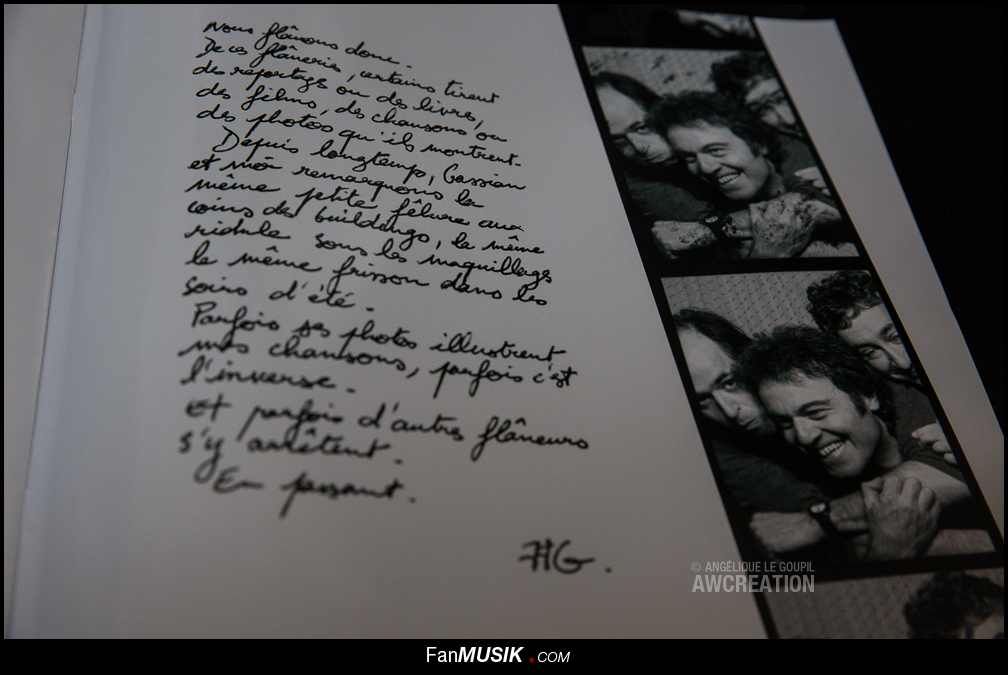 Nous flânons donc.
De ces flâneries, certains tirent
des reportages ou des livres,
des films, des chansons, ou
des photos qu'ils montrent.
Depuis longtemps, Gassian
et moi remarquons la
même petite fêlure aux
coins des buildings, la même
ridule sous les maquillages
le même frisson dans les
soirs d'été.
Parfois ses photos illustrent
mes chansons, parfois c'est
l'inverse.
Et parfois d'autres flâneurs
s'y arrêtent.
En passant.
JJG.
© ANGÉLIQUE LE GOUPIL
AWCREATION
FanMUSIK.COM